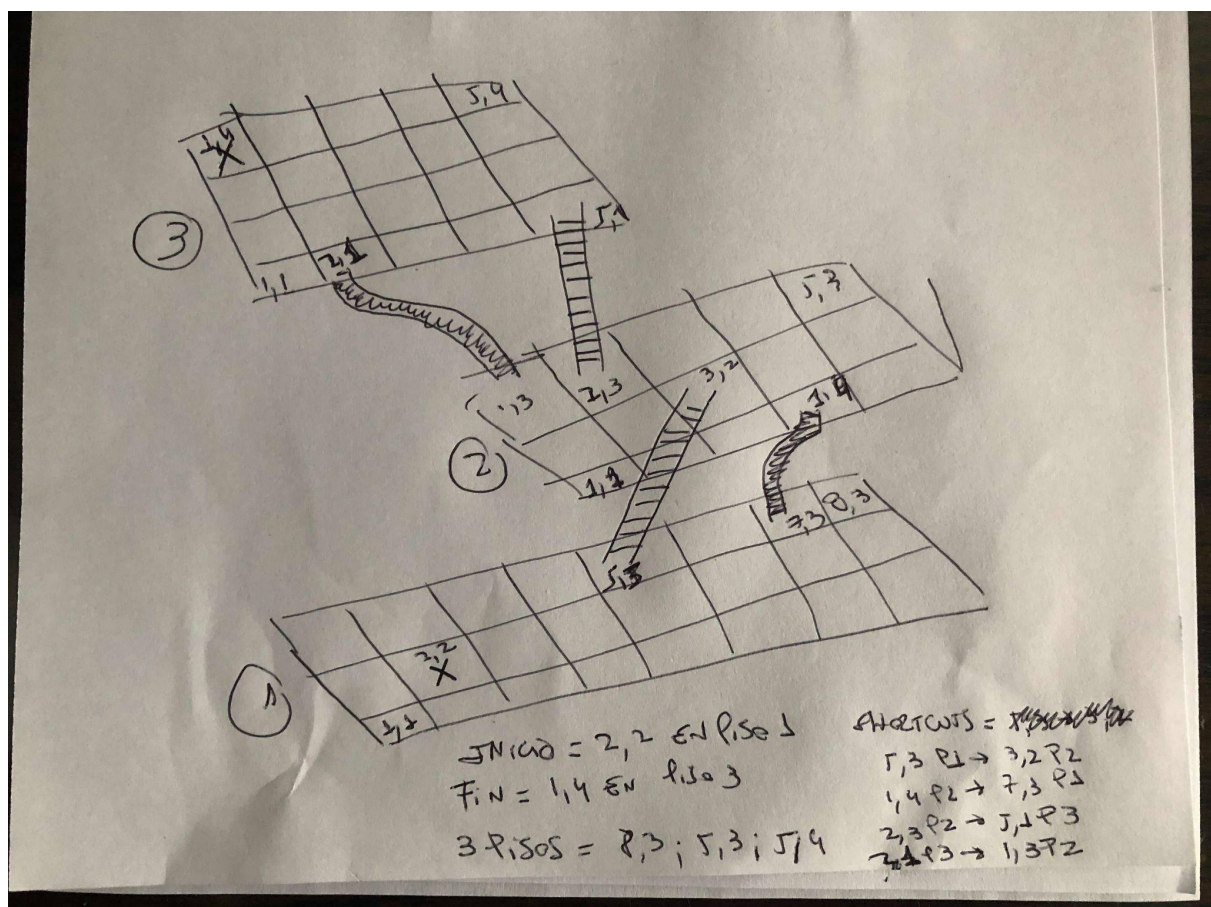 5,4
1,4
X
3
5,1
2,1
1,1
5,3
3,2
1,3
2,3
1,4
2
1,1
7,3
8,3
5,3
2,2
X
1
1,1
INICIO = 2,2 EN PISO 1
FIN = 1,4 EN PISO 3
3 PISOS = 8,3 ; 5,3 ; 5,4
SHORTCUTS =
5,3 P1 → 3,2 P2
1,4 P2 → 7,3 P1
2,3 P2 → 5,1 P3
2,1 P3 → 1,3 P2